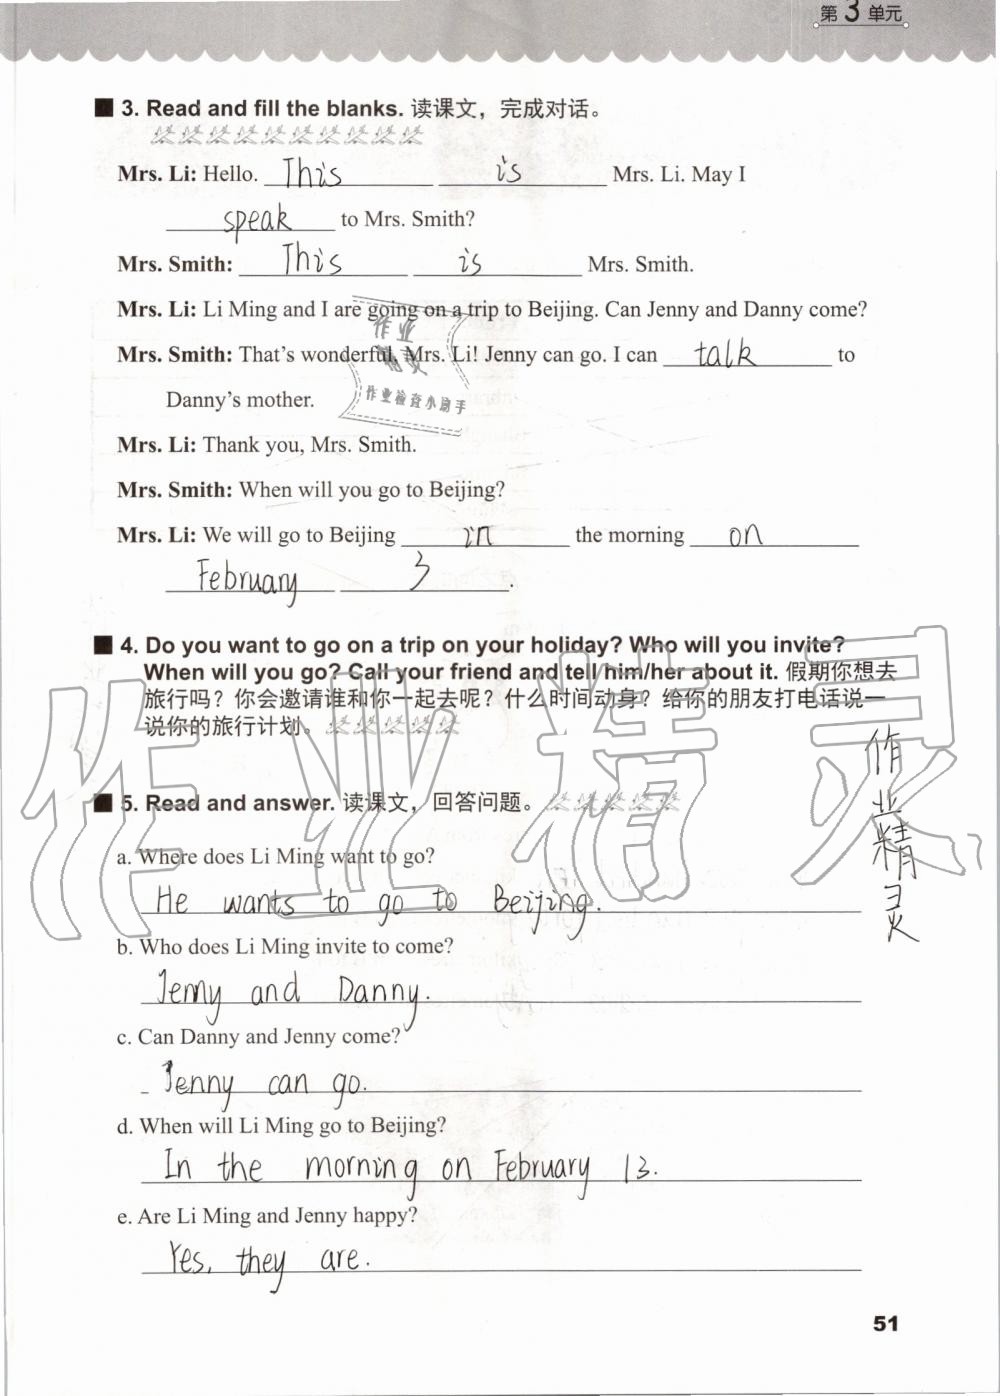 第3单元
3. Read and fill the blanks. 读课文，完成对话。
Mrs. Li: Hello. This is Mrs. Li. May I
speak to Mrs. Smith?
Mrs. Smith: This is Mrs. Smith.
Mrs. Li: Li Ming and I are going on a trip to Beijing. Can Jenny and Danny come?
作业
精灵
Mrs. Smith: That's wonderful, Mrs. Li! Jenny can go. I can talk to
作业检查小助手
Danny's mother.
Mrs. Li: Thank you, Mrs. Smith.
Mrs. Smith: When will you go to Beijing?
Mrs. Li: We will go to Beijing in the morning on
February 3.
4. Do you want to go on a trip on your holiday? Who will you invite?
When will you go? Call your friend and tell him/her about it. 假期你想去
旅行吗？你会邀请谁和你一起去呢？什么时间动身？给你的朋友打电话说一
说你的旅行计划。
作业精灵
作业精灵
5. Read and answer. 读课文，回答问题。
a. Where does Li Ming want to go?
He wants to go to Beijing.
b. Who does Li Ming invite to come?
Jenny and Danny.
c. Can Danny and Jenny come?
Jenny can go.
d. When will Li Ming go to Beijing?
In the morning on February 13.
e. Are Li Ming and Jenny happy?
Yes, they are.
51